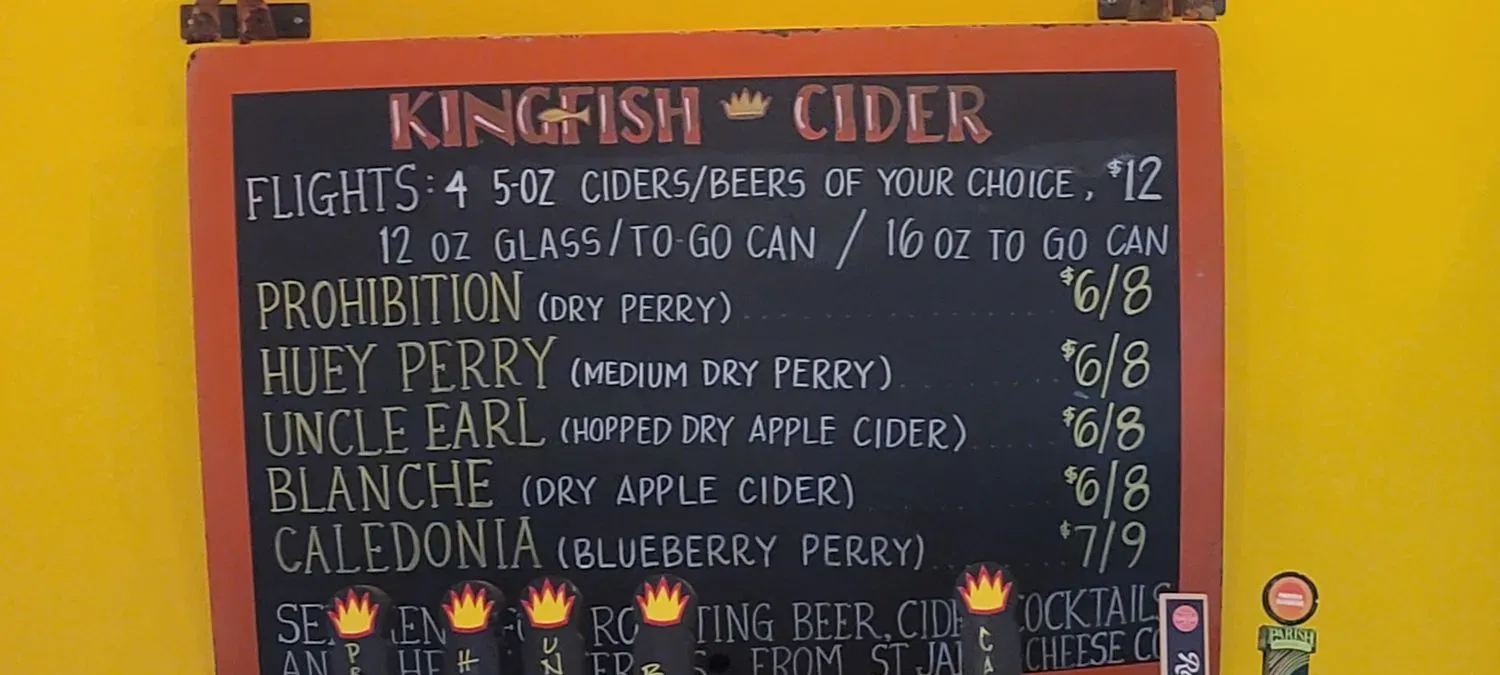 KINGFISH CIDER
FLIGHTS: 4 5-OZ CIDERS/BEERS OF YOUR CHOICE, $12
12 OZ GLASS/TO-GO CAN / 16 OZ TO GO CAN
PROHIBITION (DRY PERRY) $6/8
HUEY PERRY (MEDIUM DRY PERRY) $6/8
UNCLE EARL (HOPPED DRY APPLE CIDER) $6/8
BLANCHE (DRY APPLE CIDER) $6/8
CALEDONIA (BLUEBERRY PERRY) $7/9
BEER, COCKTAILS
FROM ST CHEESE
PARISH